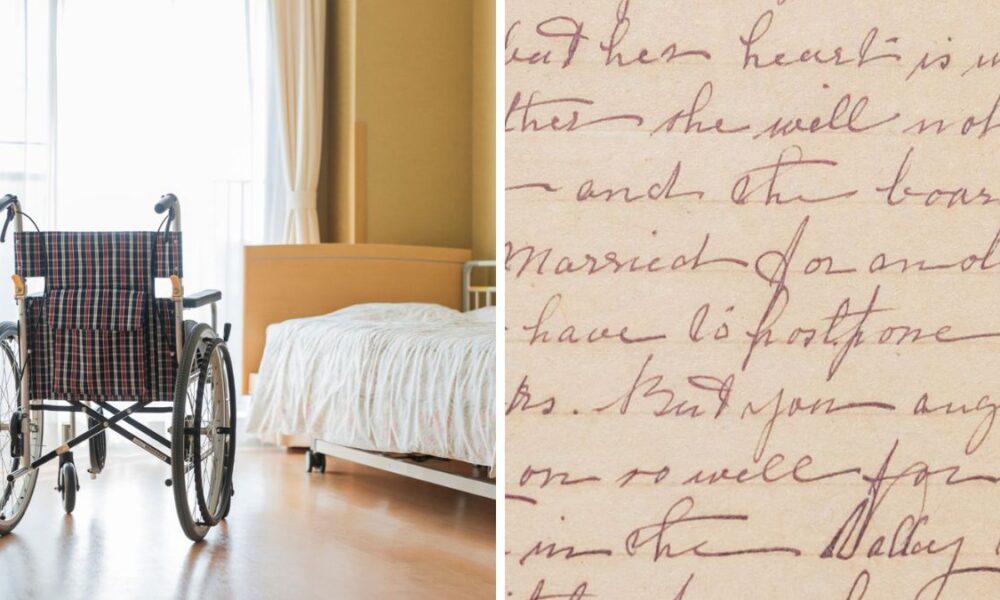 but her heart is
ther she will not
and the boar
married for an ol
have to postpone
rs. But you aug
on so well for
in the Valley